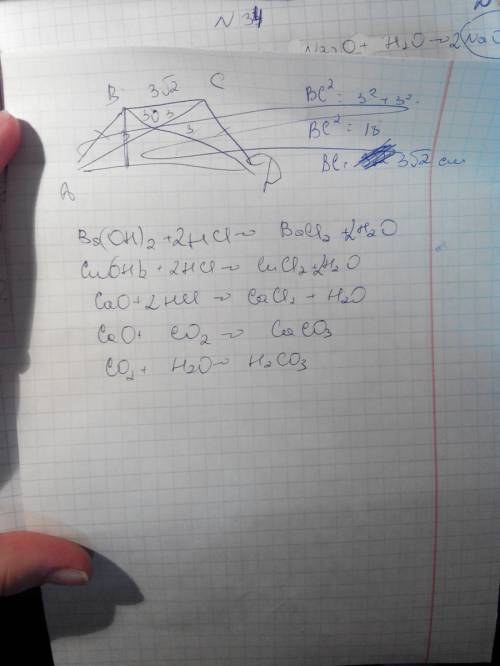 N 34
Na₂O + H₂O → 2NaO
B 3√2 C
3 O 3
3
A
D
BC² = 3² + 3²
BC² = 18
BC = 3√2 см
Ba(OH)₂ + 2HCl → BaCl₂ + 2H₂O
Cu(OH)₂ + 2HCl → CuCl₂ + 2H₂O
CaO + 2HCl → CaCl₂ + H₂O
CaO + CO₂ → CaCO₃
CO₂ + H₂O → H₂CO₃